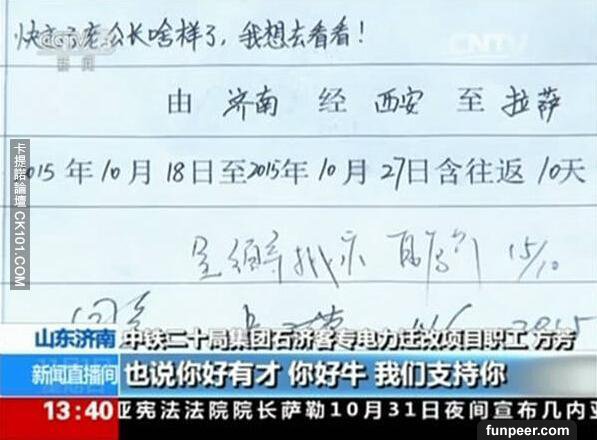 快忘了老公长啥样了，我想去看看！
CCTV
新 闻
CNTV
由 济南 经 西安 至 拉萨
2015年10月18日至2015年10月27日含往返10天
卡提諾論壇 CK101.COM
15/10
同意
2015
山东济南
中铁二十局集团石济客专电力迁改项目职工 方芳
新闻直播间
也说你好有才 你好牛 我们支持你
13:40
亚宪法法院院长萨勒10月31日夜间宣布几内亚
funpeer.com